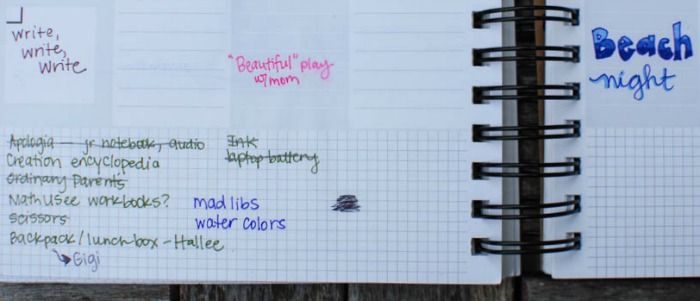 write,
write,
write
"Beautiful" play
w/mom
Beach
night
Apologia — jr notebook, audio
Creation encyclopedia
Ordinary Parents
MathUSee workbooks?
scissors
Backpack/lunchbox - Hallee
Gigi
Ink
laptop battery
mad libs
water colors